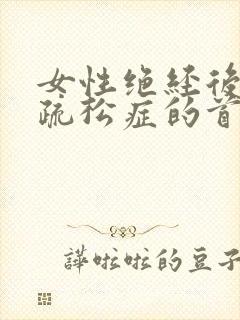 女性绝经後
疏松症的首
譁啦啦的豆子